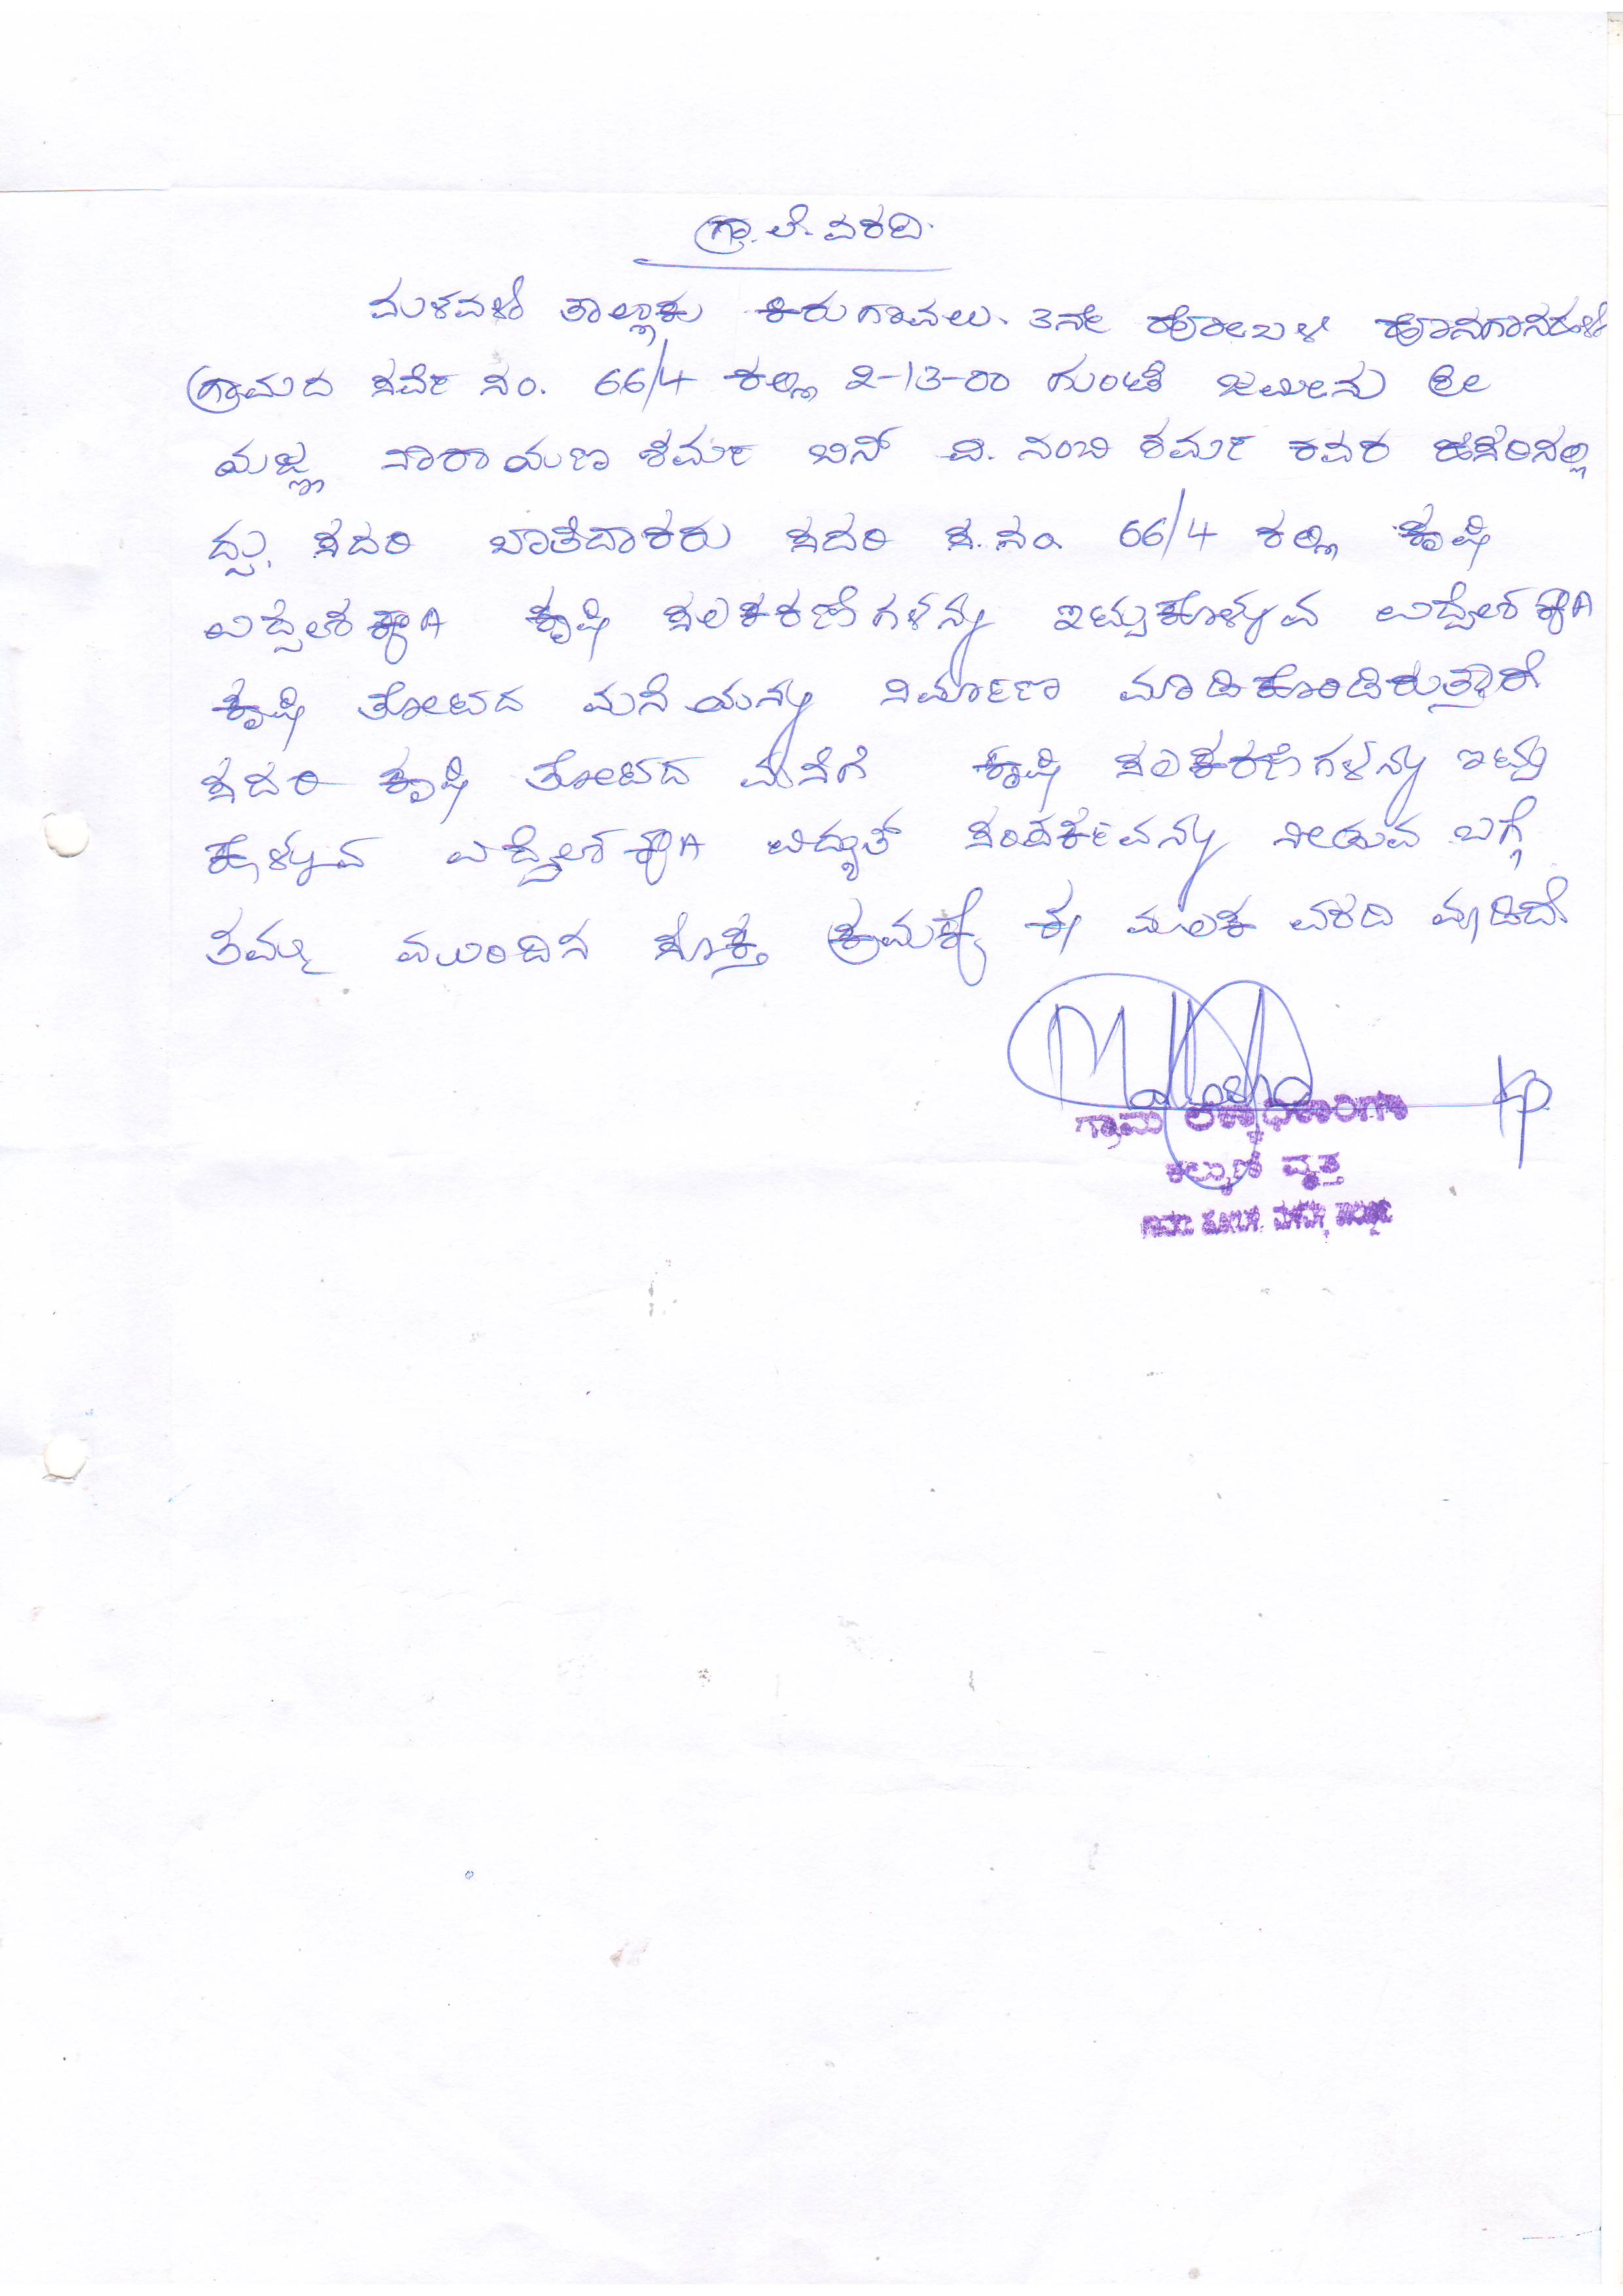 ಗ್ರಾ.ಲೆ.ವರದಿ.
ಮಳವಳ್ಳಿ ತಾಲ್ಲೂಕು ಕಿರುಗಾವಲು. 3ನೇ ಹೋಬಳಿ
ಗ್ರಾಮದ ಸರ್ವೆ ನಂ. 66/4 ರಲ್ಲಿ 2-13-00 ಗುಂಟೆ ಜಮೀನು ಶ್ರೀ
ಯಜ್ಞ ನಾರಾಯಣ ಶರ್ಮ ಬಿನ್ ವಿ. ನಂಬಿ ಶರ್ಮ ರವರ ಹೆಸರಿನಲ್ಲಿ
ದ್ದು, ಸದರಿ ಖಾತೆದಾರರು ಸದರಿ ಸ.ನಂ. 66/4 ರಲ್ಲಿ ಕೃಷಿ
ಉದ್ದೇಶಕ್ಕಾಗಿ ಕೃಷಿ ಸಲಕರಣೆಗಳನ್ನು ಇಟ್ಟುಕೊಳ್ಳುವ ಉದ್ದೇಶಕ್ಕಾಗಿ
ಕೃಷಿ ತೋಟದ ಮನೆಯನ್ನು ನಿರ್ಮಾಣ ಮಾಡಿಕೊಂಡಿರುತ್ತಾರೆ
ಸದರಿ ಕೃಷಿ ತೋಟದ ಮನೆಗೆ ಕೃಷಿ ಸಲಕರಣೆಗಳನ್ನು ಇಟ್ಟು
ಕೊಳ್ಳುವ ಉದ್ದೇಶಕ್ಕಾಗಿ ವಿದ್ಯುತ್ ಸಂಪರ್ಕವನ್ನು ನೀಡುವ ಬಗ್ಗೆ
ತಮ್ಮ ಮುಂದಿನ ಸೂಕ್ತ ಕ್ರಮಕ್ಕೆ ಈ ಮೂಲಕ ವರದಿ ಮಾಡಿದೆ.
ಗ್ರಾಮ ಲೆಕ್ಕಾಧಿಕಾರಿಗಳು
ಕಲ್ಕುಣಿ ವೃತ್ತ